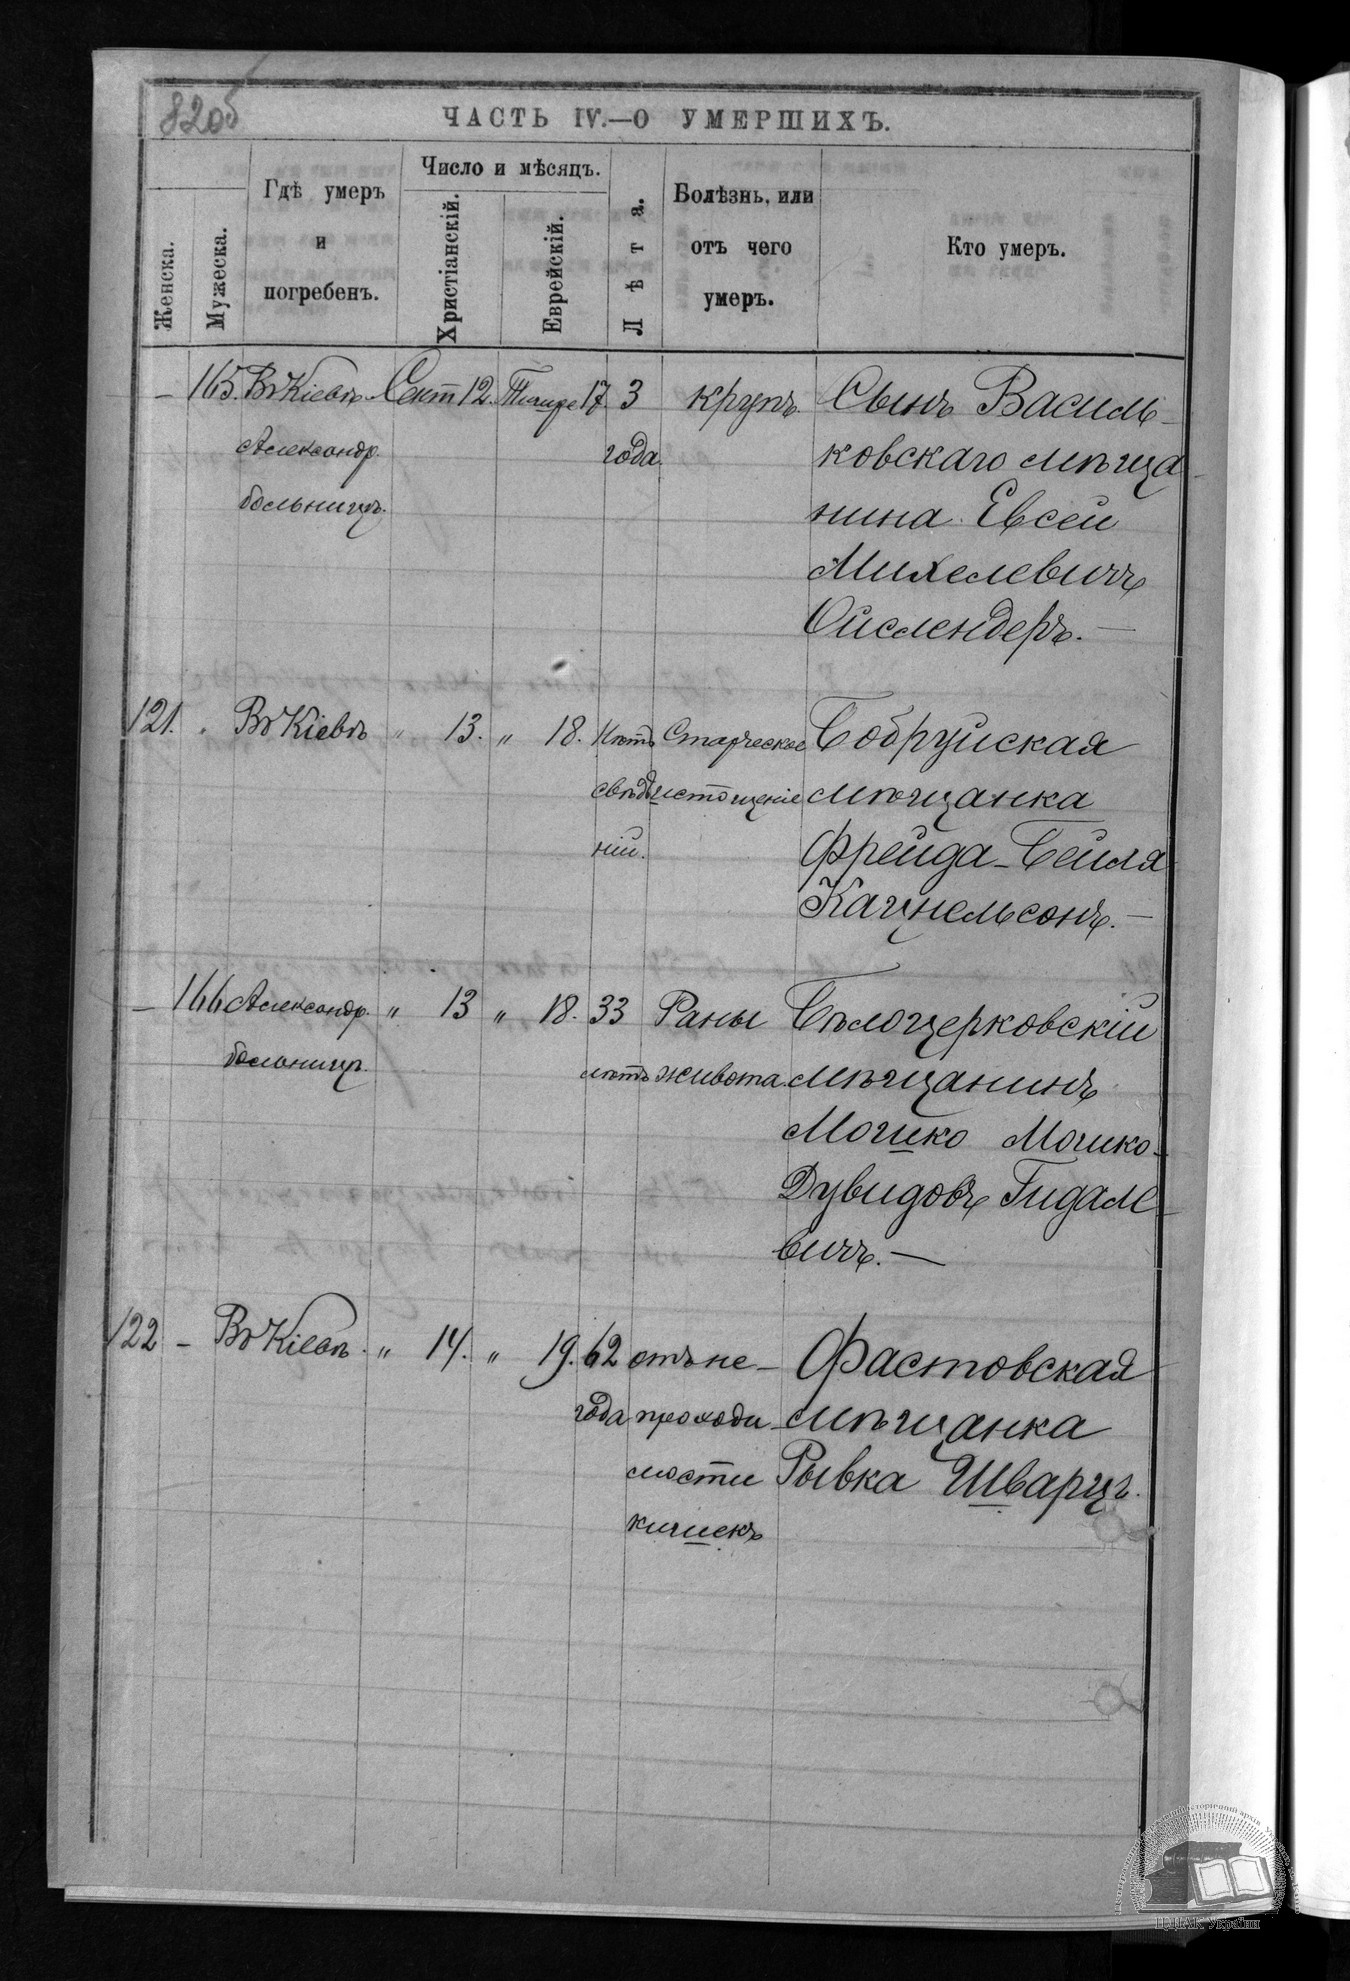 82об
ЧАСТЬ IV.—О УМЕРШИХЪ.
Женска.
Мужеска.
Гдѣ умеръ
и
погребенъ.
Число и мѣсяцъ.
Христіанскій.
Еврейскій.
Лѣта.
Болѣзнь, или
отъ чего
умеръ.
Кто умеръ.
— 165. Въ Кіевѣ Сент 12. Тишре 17. 3 крупъ. Сынъ Василь-
Александр. года. ковскаго мѣща-
больницѣ. нина Евсей
Михелевичъ
Ойслендеръ. —
121. „ Въ Кіевѣ „ 13. „ 18. Нѣтъ Старческое Бобруйская
свѣдѣ истощеніе мѣщанка
ній. Фрейда-Бейля
Кацнельсонъ. —
— 166 Александр. „ 13 „ 18. 33 Раны Бѣлоцерковскій
больницѣ. лѣтъ живота. мѣщанинъ
Мошко Мошко-
Дувидовъ Гидале-
вичъ. —
122 — Въ Кіевѣ. „ 14. „ 19. 62 отъ не- Фастовская
года проходи- мѣщанка
мости Рывка Шварцъ.
кишекъ
ЦДІАК України